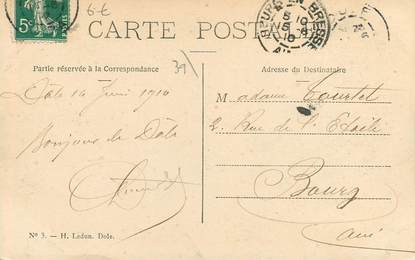 6€
CARTE POSTALE
5c
BOURG EN BRESSE
Partie réservée à la Correspondance
Adresse du Destinataire
39
Dole 14 Juin 1910
Bonjour de Dôle
Madame Tourtet
2, Rue de l'Etoile
Bourg
Ain
N° 3. - H. Ledun. Dole.